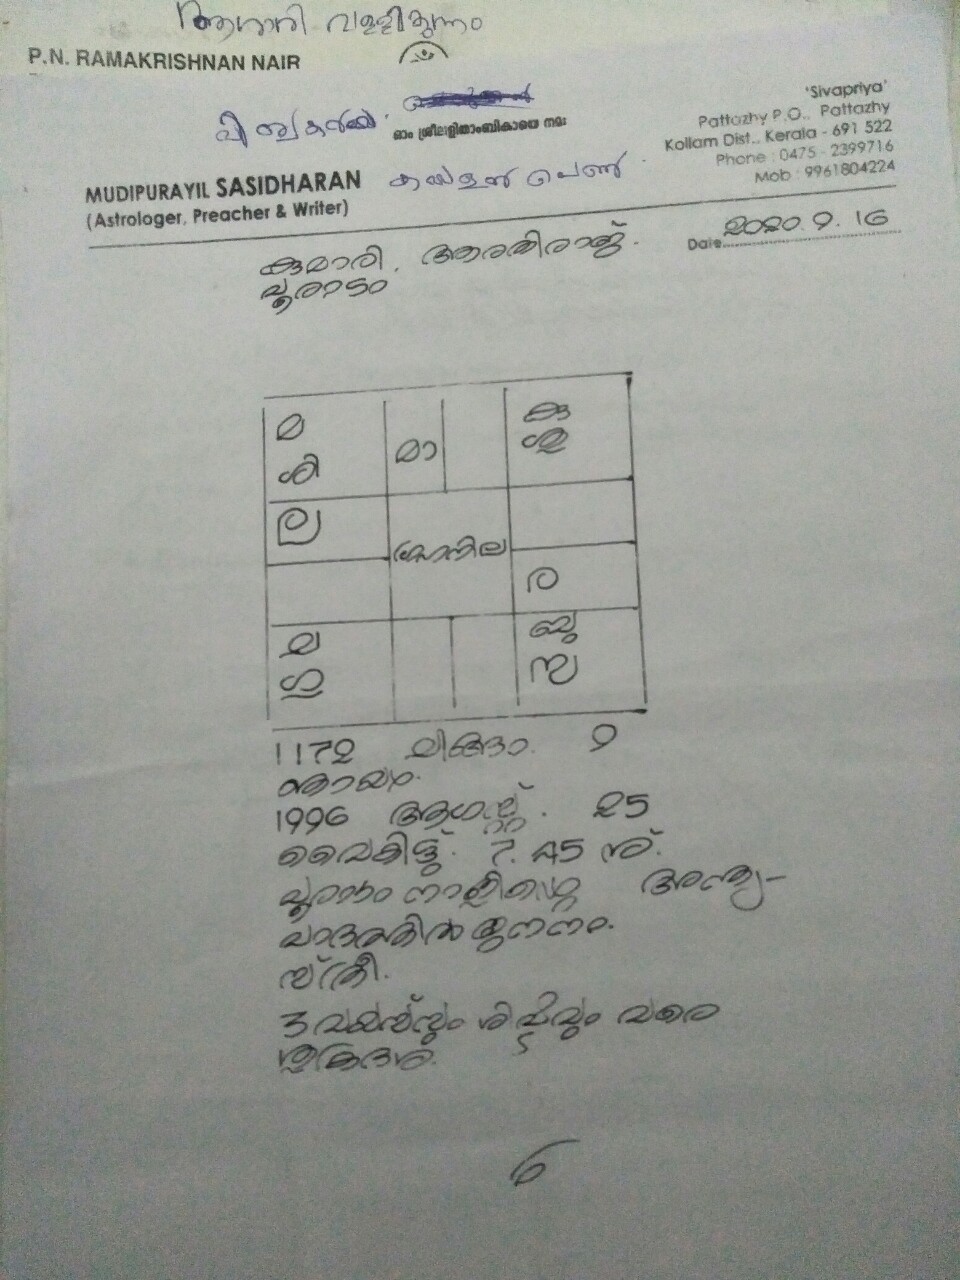 ആശാരി വള്ളികുന്നം
P.N. RAMAKRISHNAN NAIR
വിശ്വകർമ്മ.
ഓം ശ്രീലളിതാംബികായെ നമഃ
'Sivapriya'
Pattazhy P.O., Pattazhy
Kollam Dist., Kerala - 691 522
Phone : 0475 - 2399716
Mob : 9961804224
MUDIPURAYIL SASIDHARAN
(Astrologer, Preacher & Writer)
പെൺ
Date 2020. 9. 16
കുമാരി. ആരതിരാജ്.
പൂരാടം
മ
ശി
മാ
കു
ശു
ല
ഗ്രഹനില
ര
ച
ഗു
ബു
സ
1172 ചിങ്ങം. 9
ഞായർ.
1996 ആഗസ്റ്റ്. 25
വൈകിട്ട്. 7. 45 ന്.
പൂരാടം നാളിന്റെ അന്ത്യ-
പാദത്തിൽ ജനനം.
സ്ത്രീ.
3 വയസ്സും ശിഷ്ടവും വരെ
ശുക്രദശ.
6